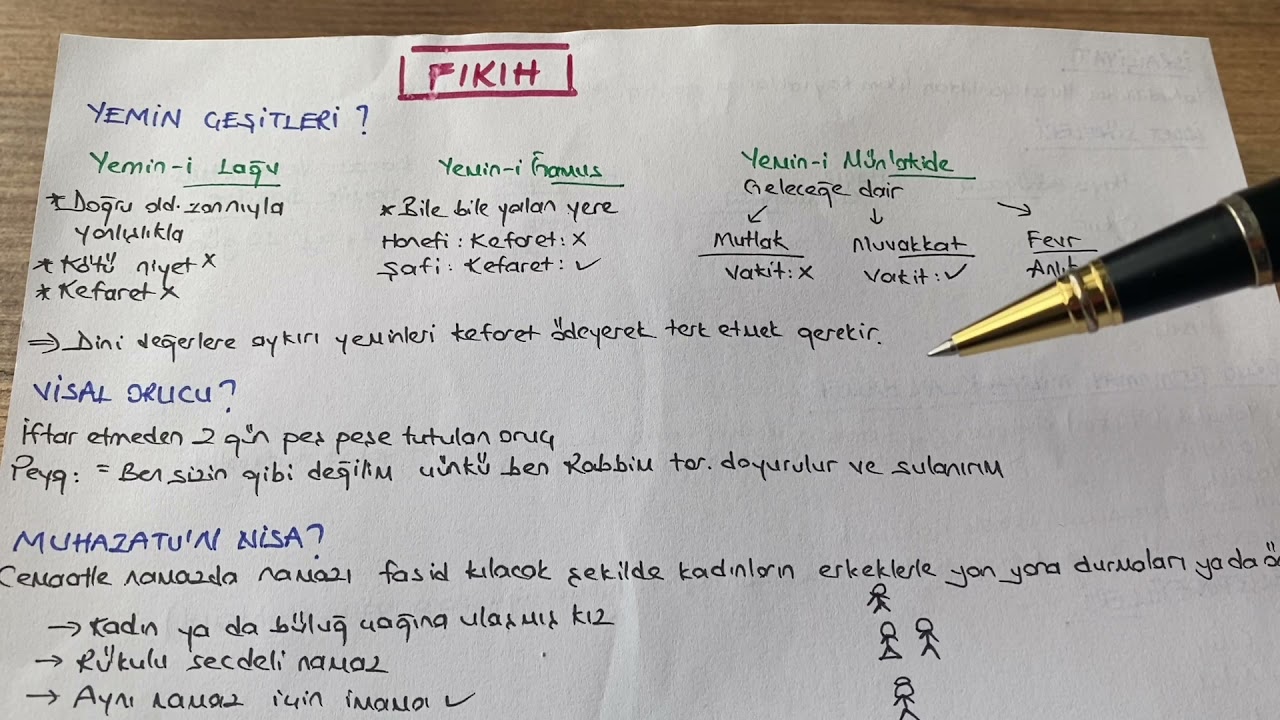 FIKIH
YEMİN ÇEŞİTLERİ?
Yemin-i Lağv
* Doğru old. zannıyla
yanlışlıkla
* Kötü niyet x
* Kefaret x
Yemin-i Ğamus
* Bile bile yalan yere
Hanefi: Kefaret: x
Şafi: Kefaret: ✓
Yemin-i Mün'akide
Geleceğe dair
↙ ↓ ↘
Mutlak
Vakit: x
Muvakkat
Vakit: ✓
Fevr
⇒ Dini değerlere aykırı yeminleri kefaret ödeyerek terk etmek gerekir.
VİSAL ORUCU?
İftar etmeden 2 gün peş peşe tutulan oruç
Peyg: = Ben sizin gibi değilim çünkü ben Rabbim tar. doyurulur ve sulanırım
MUHAZATU'N NİSA?
Cemaatle namazda namazı fasid kılacak şekilde kadınların erkeklerle yan yana durmaları ya da
→ Kadın ya da büluğ çağına ulaşmış kız
→ Rükulu secdeli namaz
→ Aynı namaz için imama ✓